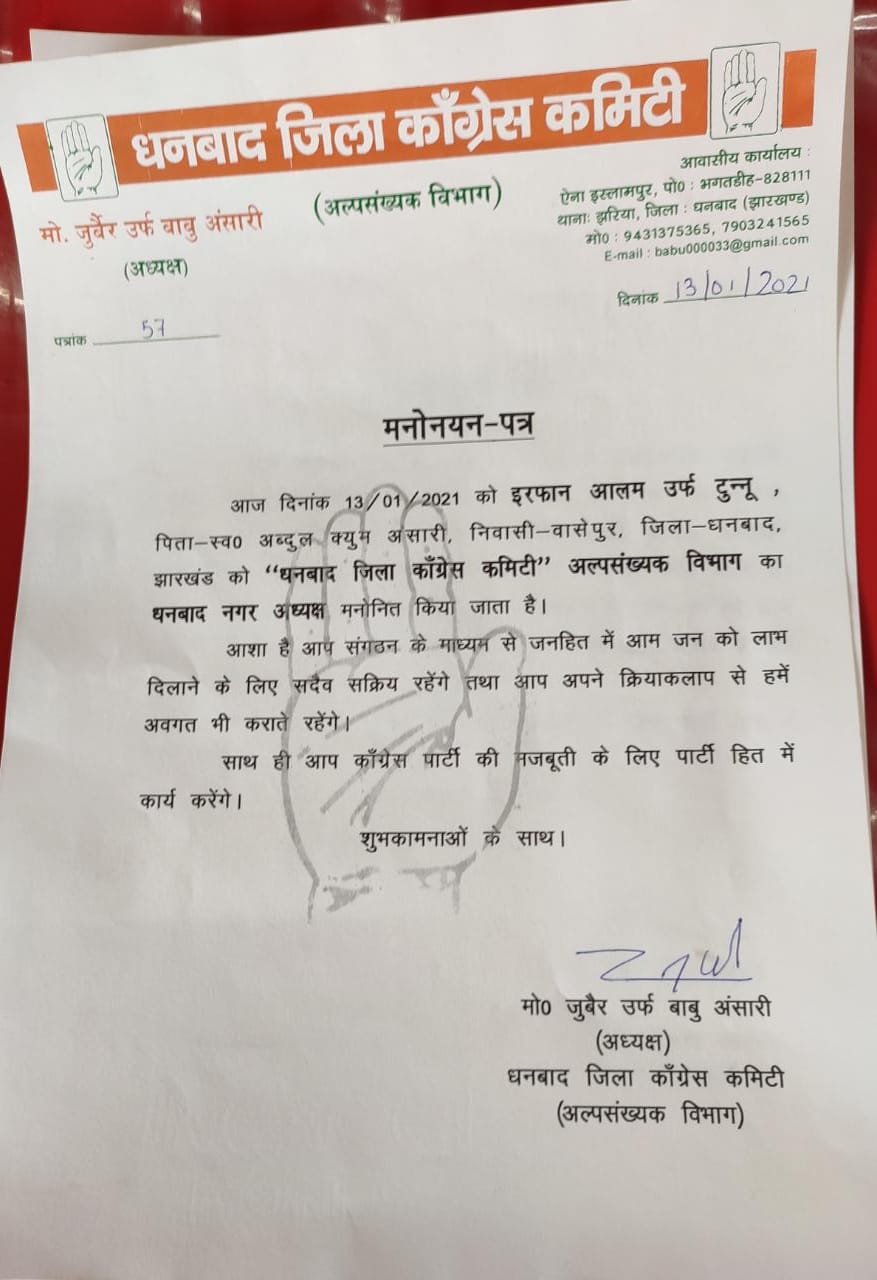 धनबाद जिला काँग्रेस कमिटी
(अल्पसंख्यक विभाग)
मो. जुबैर उर्फ बाबु अंसारी
(अध्यक्ष)
आवासीय कार्यालय :
ऐना इस्लामपुर, पो0 : भगतडीह-828111
थानाः झरिया, जिला : धनबाद (झारखण्ड)
मो0 : 9431375365, 7903241565
E-mail : babu000033@gmail.com
दिनांक 13/01/2021
पत्रांक 57
मनोनयन-पत्र
आज दिनांक 13/01/2021 को इरफान आलम उर्फ टुन्नू ,
पिता-स्व0 अब्दुल क्युम अंसारी, निवासी-वासेपुर, जिला-धनबाद,
झारखंड को “धनबाद जिला काँग्रेस कमिटी” अल्पसंख्यक विभाग का
धनबाद नगर अध्यक्ष मनोनित किया जाता है।
आशा है आप संगठन के माध्यम से जनहित में आम जन को लाभ
दिलाने के लिए सदैव सक्रिय रहेंगे तथा आप अपने क्रियाकलाप से हमें
अवगत भी कराते रहेंगे।
साथ ही आप काँग्रेस पार्टी की मजबूती के लिए पार्टी हित में
कार्य करेंगे।
शुभकामनाओं के साथ।
मो0 जुबैर उर्फ बाबु अंसारी
(अध्यक्ष)
धनबाद जिला काँग्रेस कमिटी
(अल्पसंख्यक विभाग)